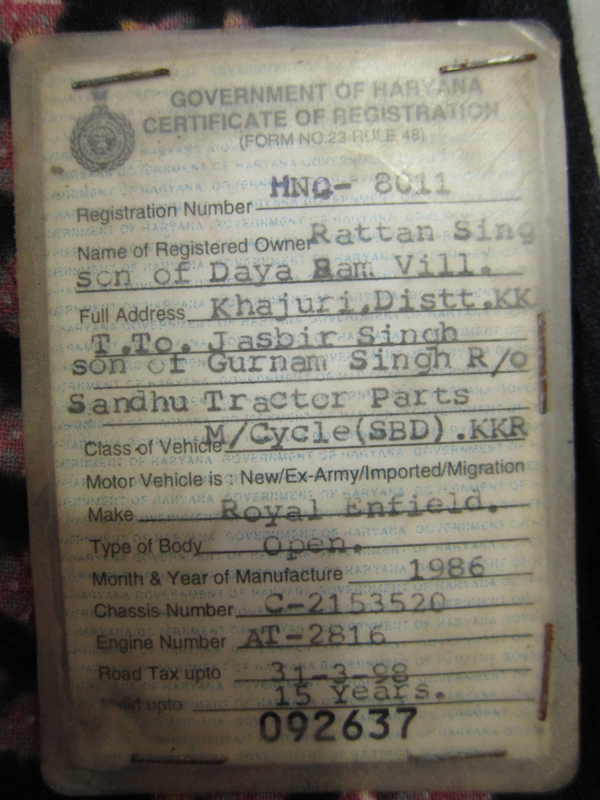 GOVERNMENT OF HARYANA
CERTIFICATE OF REGISTRATION
(FORM NO.23 RULE 48)
Registration Number HNQ- 8011
Name of Registered Owner Rattan Sing
son of Daya Ram Vill.
Full Address Khajuri,Distt.KK
T.To. Jasbir Singh
son of Gurnam Singh R/o
Sandhu Tractor Parts
Class of Vehicle M/Cycle(SBD).KKR
Motor Vehicle is : New/Ex-Army/Imported/Migration
Make Royal Enfield.
Type of Body Open.
Month & Year of Manufacture 1986
Chassis Number C-2153520
Engine Number AT-2816
Road Tax upto 31-3-98
upto 15 Years.
092637